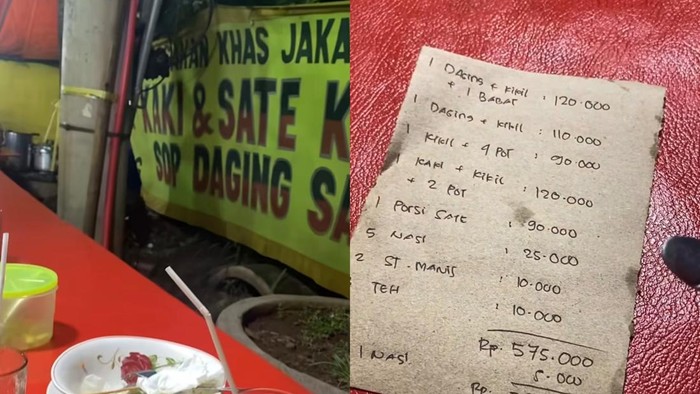 KHAS JAKA
KAKI & SATE K
SOP DAGING SA
1 DAGING + KIKIL
+ 1 BABAT : 120.000
1 DAGING + KIKIL : 110.000
1 KIKIL + 4 POT : 90.000
1 KAKI + KIKIL : 120.000
+ 2 POT
1 PORSI SATE : 90.000
5 NASI : 25.000
2 ST. MANIS : 10.000
TEH : 10.000
Rp. 575.000
1 NASI 5.000
Rp.